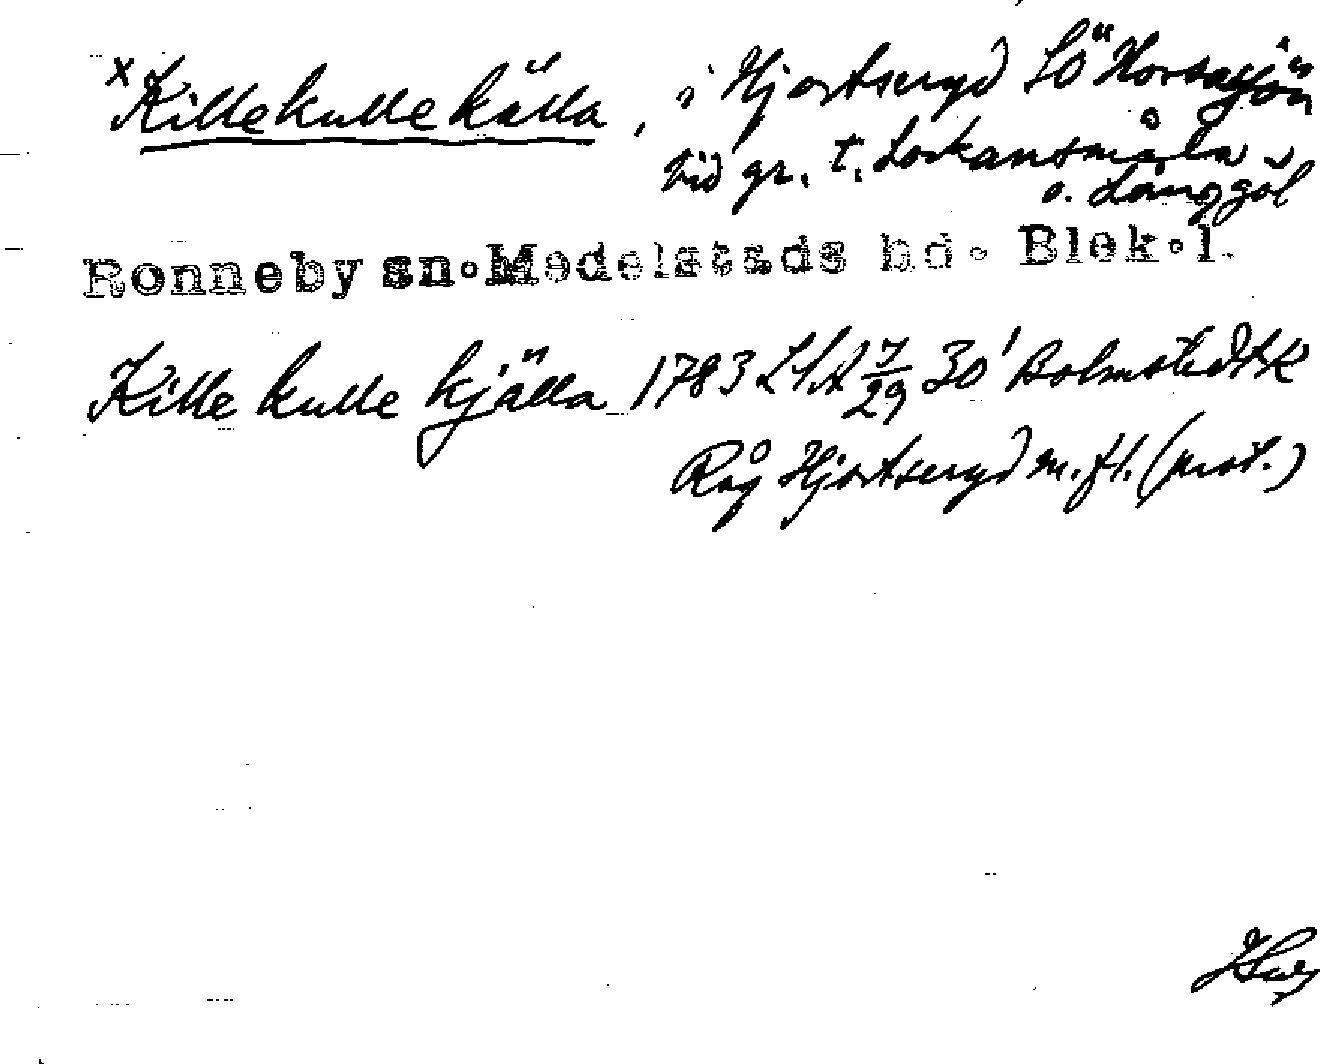 x Killekulle källa, i Hjortseryd SÖ Horsasjön
vid gr. t. Lockansmåla
o. Långgöl
Ronneby sn. Medelstads hd. Blek.l.
Kille kulle kjälla 1783 LSA 7/29 30' Bolmstedt k
Råg Hjortseryd m.fl. (prot.)